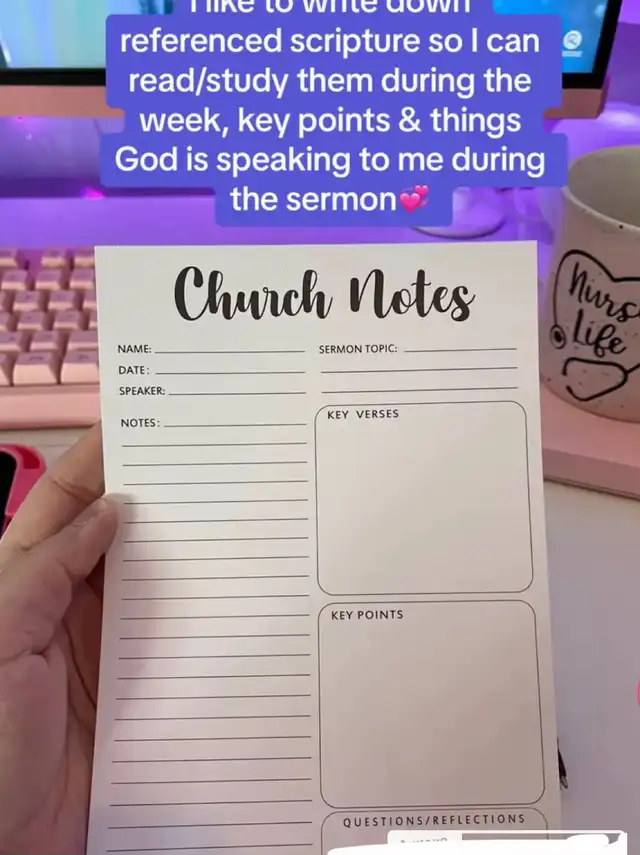 I like to write down
referenced scripture so I can
read/study them during the
week, key points & things
God is speaking to me during
the sermon💞
Church Notes
NAME:
DATE:
SPEAKER:
NOTES:
SERMON TOPIC:
KEY VERSES
KEY POINTS
QUESTIONS/REFLECTIONS
Life